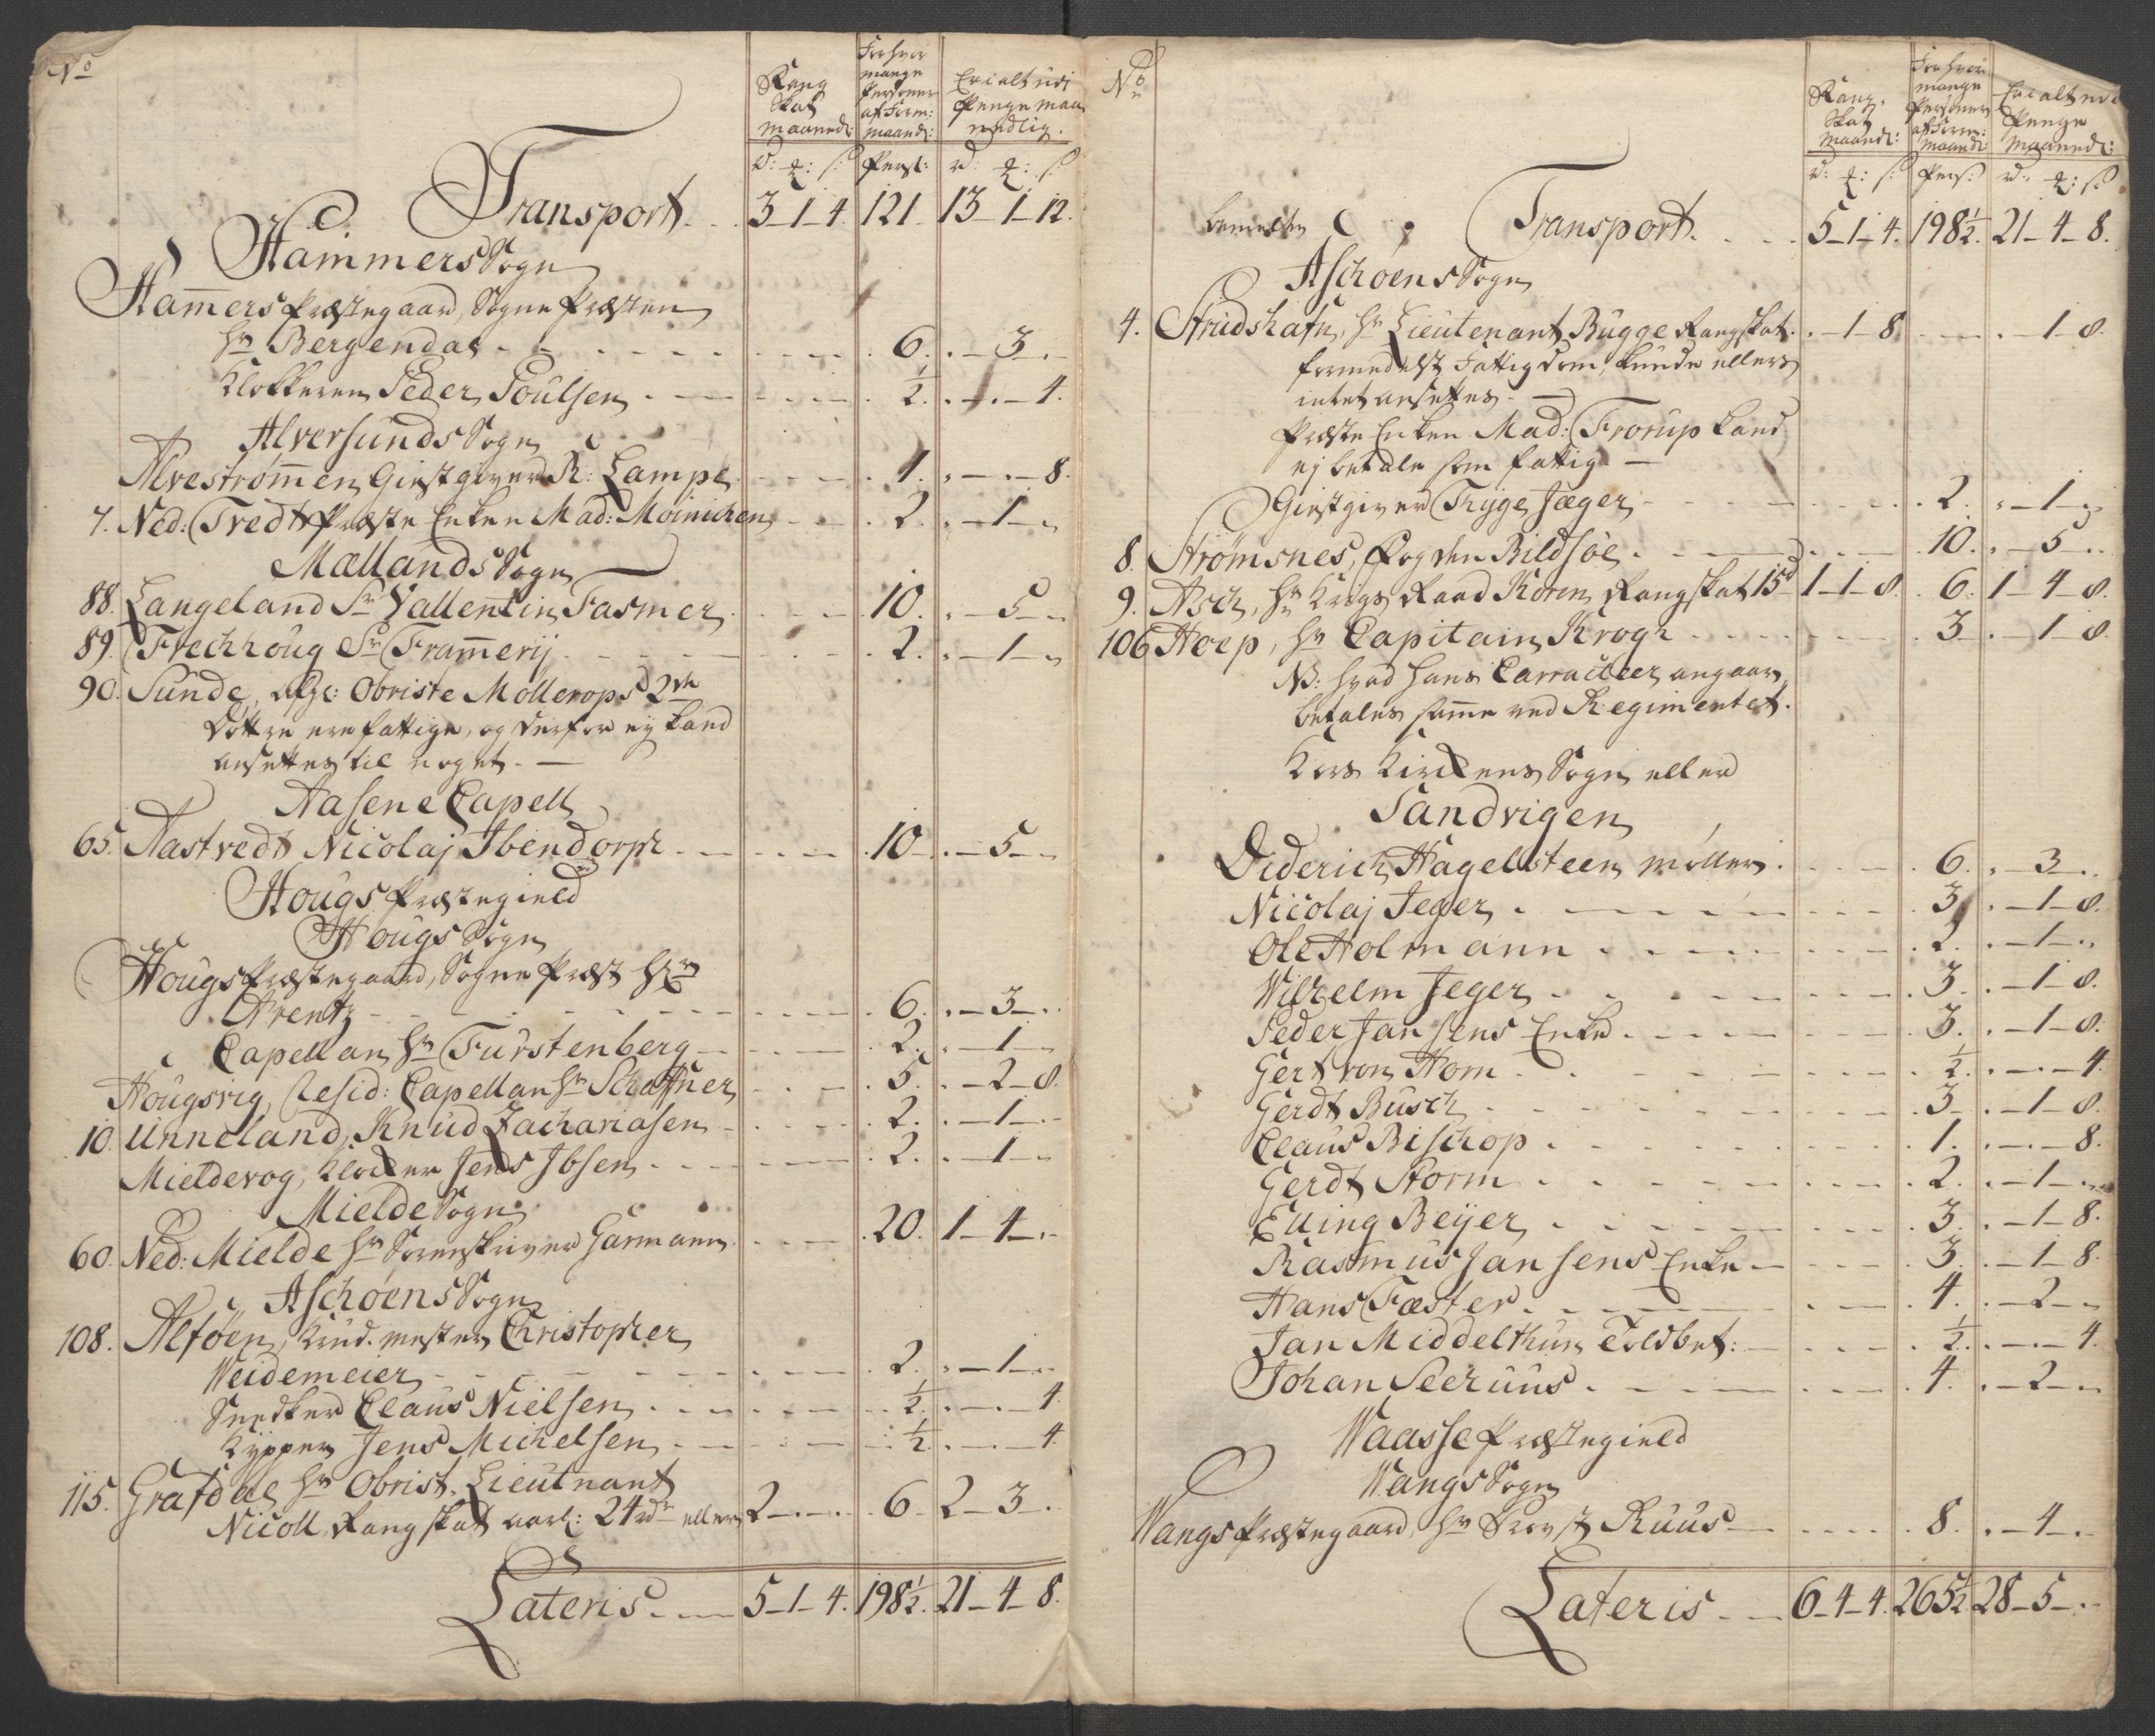 No
Rang
Skat
maanedl:
For hvor
mange
Personer
af Form:
maandl:
Er i alt udi
Penge maa
nedlig.
rd: ꝣ: s: Pers: rd: ꝣ: s
Transport. . 3-1-4. 121. 13-1-12.
Hammers Sogn
Hamers Præstegaard, Sogne Præsten
Hr Bergendal - - - 6. . - 3 -
Klokkeren Peder Poulsen - - - ½. . - . - 4.
Alversunds Sogn
Alvestrømmen Giestgiver R: Lampe - - 1. . - . - 8.
7. Ned: Tvedt Præste Enken Mad: Moinichen - 2. . - 1 -
Mællands Sogn
88. Langeland Sr Vallentin Fasmer - - 10. . - 5 -
89. Frechhoug Sr Framerij - - - 2. . - 1 -
90. Sunde, Obriste Møllerops 2de
Døttre ere fattige, og derfor ej kand
ansettes til noget. -
Aasene Capell
65. Aastvedt Nicolaj Ibendorph - - - 10. . - 5 -
Hougs Præstegield
Hougs Sogn
Hougs Præstegaard, Sogne Præst Hr
Arentz - - - 6. . - 3 -
Capellan Hr Furstenberg - - 2. . - 1 -
Hougsvig, Resid: Capellan Hr Schaffner - - 5. . - 2 - 8.
10. Unneland, Knud Zachariasen - - - 2. . - 1 -
Mieldevog, Klocker Jens Ibsen - - - 2. . - 1 -
Mielde Sogn
60. Ned: Mielde Hr Sorenskriver Garmann - - 20. 1 - 4 -
Aschøens Sogn
108. Alføen, Krud. mester Christopher
Weidemeier - - - 2. . - 1 -
Snedker Claus Nielsen - - - ½. . - . - 4.
Kypper Jens Michelsen - - - ½. . - . - 4
115. Grafdal Hr Obrist. Lieutnant
Nicoll Rang skat aarl: 24 rdr ellers 2 - . - . 6. 2 - 3 - .
Lateris. - 5-1-4. 198½. 21-4-8.
No
Rang.
Skat
Maandl:
For hvor
mange
Personer
af Form:
Maandl:
Er i alt udi
Penge
Maanedl:
rd: ꝣ: s: Pers: rd: ꝣ: s:
Transport. . . . 5-1-4. 198½. 21-4-8.
Aschøens Sogn
4. Strudshafn, Hr Lieutenant Bugge Rangskat. . - 1 - 8. - . - 1 - 8.
formedelst Fattigdom, kunde ellers
intet ansettes. -
Præste Enken Mad: Frorup kand
ej betale som fattig. -
Giestgiver Tryge Jæger - - - 2. . - 1 -
8. Strømsnes, Fogden Bildsøe - - - 10. . - 5 - .
9. Asch, Hr Krigs Raad Koren Rangskat 15d 1 - 1 - 8. 6. 1 - 4 - 8.
106 Hoep, Hr Capitain Krogh - - - 3. . - 1 - 8.
NB: hvad hans Carracteer angaar,
betales samme ved Regimentet.
Kors Kirckens Sogn eller
Sandvigen
Diderich Hagelsteen Møller - - 6. . - 3 - .
Nicolaj Jeger - - - 3. . - 1 - 8.
Ole Holmann - - - 2. . - 1 - .
Wilhelm Jeger - - - 3. . - 1 - 8.
Peder Jansens Enke - - - 3. . - 1 - 8.
Gert von Horn - - - ½. . - . - 4.
Gerdt Busch - - - 3. . - 1 - 8.
Claus Bischop - - - 1. . - . - 8.
Gerdt Storm - - - 2. . - 1 - .
Elling Beijer - - - 3. . - 1 - 8.
Rasmus Jansens Enke - - - 3. . - 1 - 8.
Hans Fæster - - - 4. . - 2 -
Jan Middelthun Toldbet: - - - ½. . - . - 4.
Johan Seeruus - - - 4. . - 2 -
Waasse Præstegield
Wangs Sogn
Wangs Præstegaard, Hr Provst Ruus - - - 8. . - 4 - .
Lateris - - 6-4-4. 265½ 28-5-.